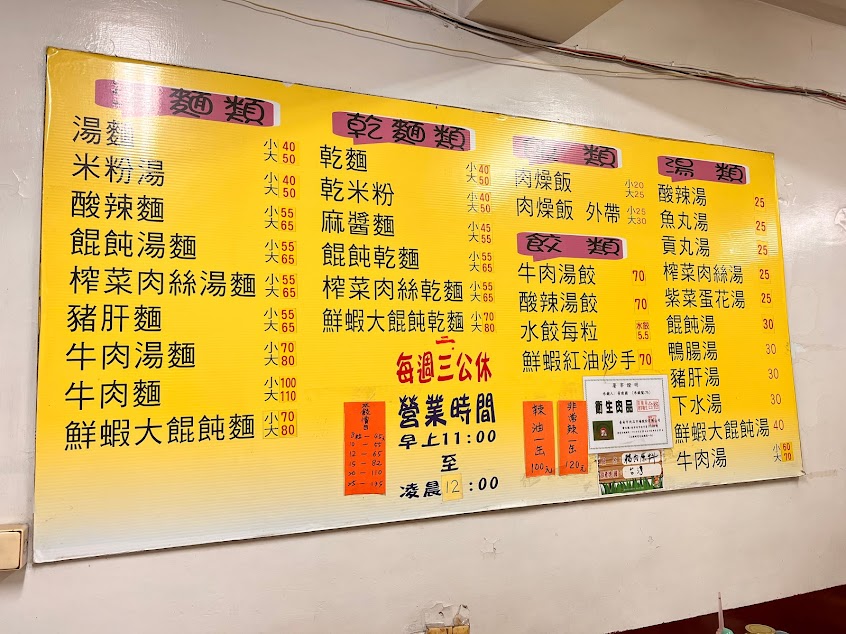 麵類
湯麵 小40 大50
米粉湯 小40 大50
酸辣麵 小55 大65
餛飩湯麵 小55 大65
榨菜肉絲湯麵 小55 大65
豬肝麵 小55 大65
牛肉湯麵 小70 大80
牛肉麵 小100 大110
鮮蝦大餛飩麵 小70 大80
乾麵類
乾麵 小40 大50
乾米粉 小40 大50
麻醬麵 小45 大55
餛飩乾麵 小55 大65
榨菜肉絲乾麵 小55 大65
鮮蝦大餛飩乾麵 小70 大80
每週二三公休
營業時間
早上11:00
至
凌晨12:00
類
肉燥飯 小20 大25
肉燥飯 外帶 小25 大30
餃類
牛肉湯餃 70
酸辣湯餃 70
水餃每粒 水餃 5.5
鮮蝦紅油炒手 70
辣油一缶100元
非常辣一缶120元
衛生肉品
湯類
酸辣湯 25
魚丸湯 25
貢丸湯 25
榨菜肉絲湯 25
紫菜蛋花湯 25
餛飩湯 30
鴨腸湯 30
豬肝湯 30
下水湯 30
鮮蝦大餛飩湯 40
牛肉湯 小60 大70